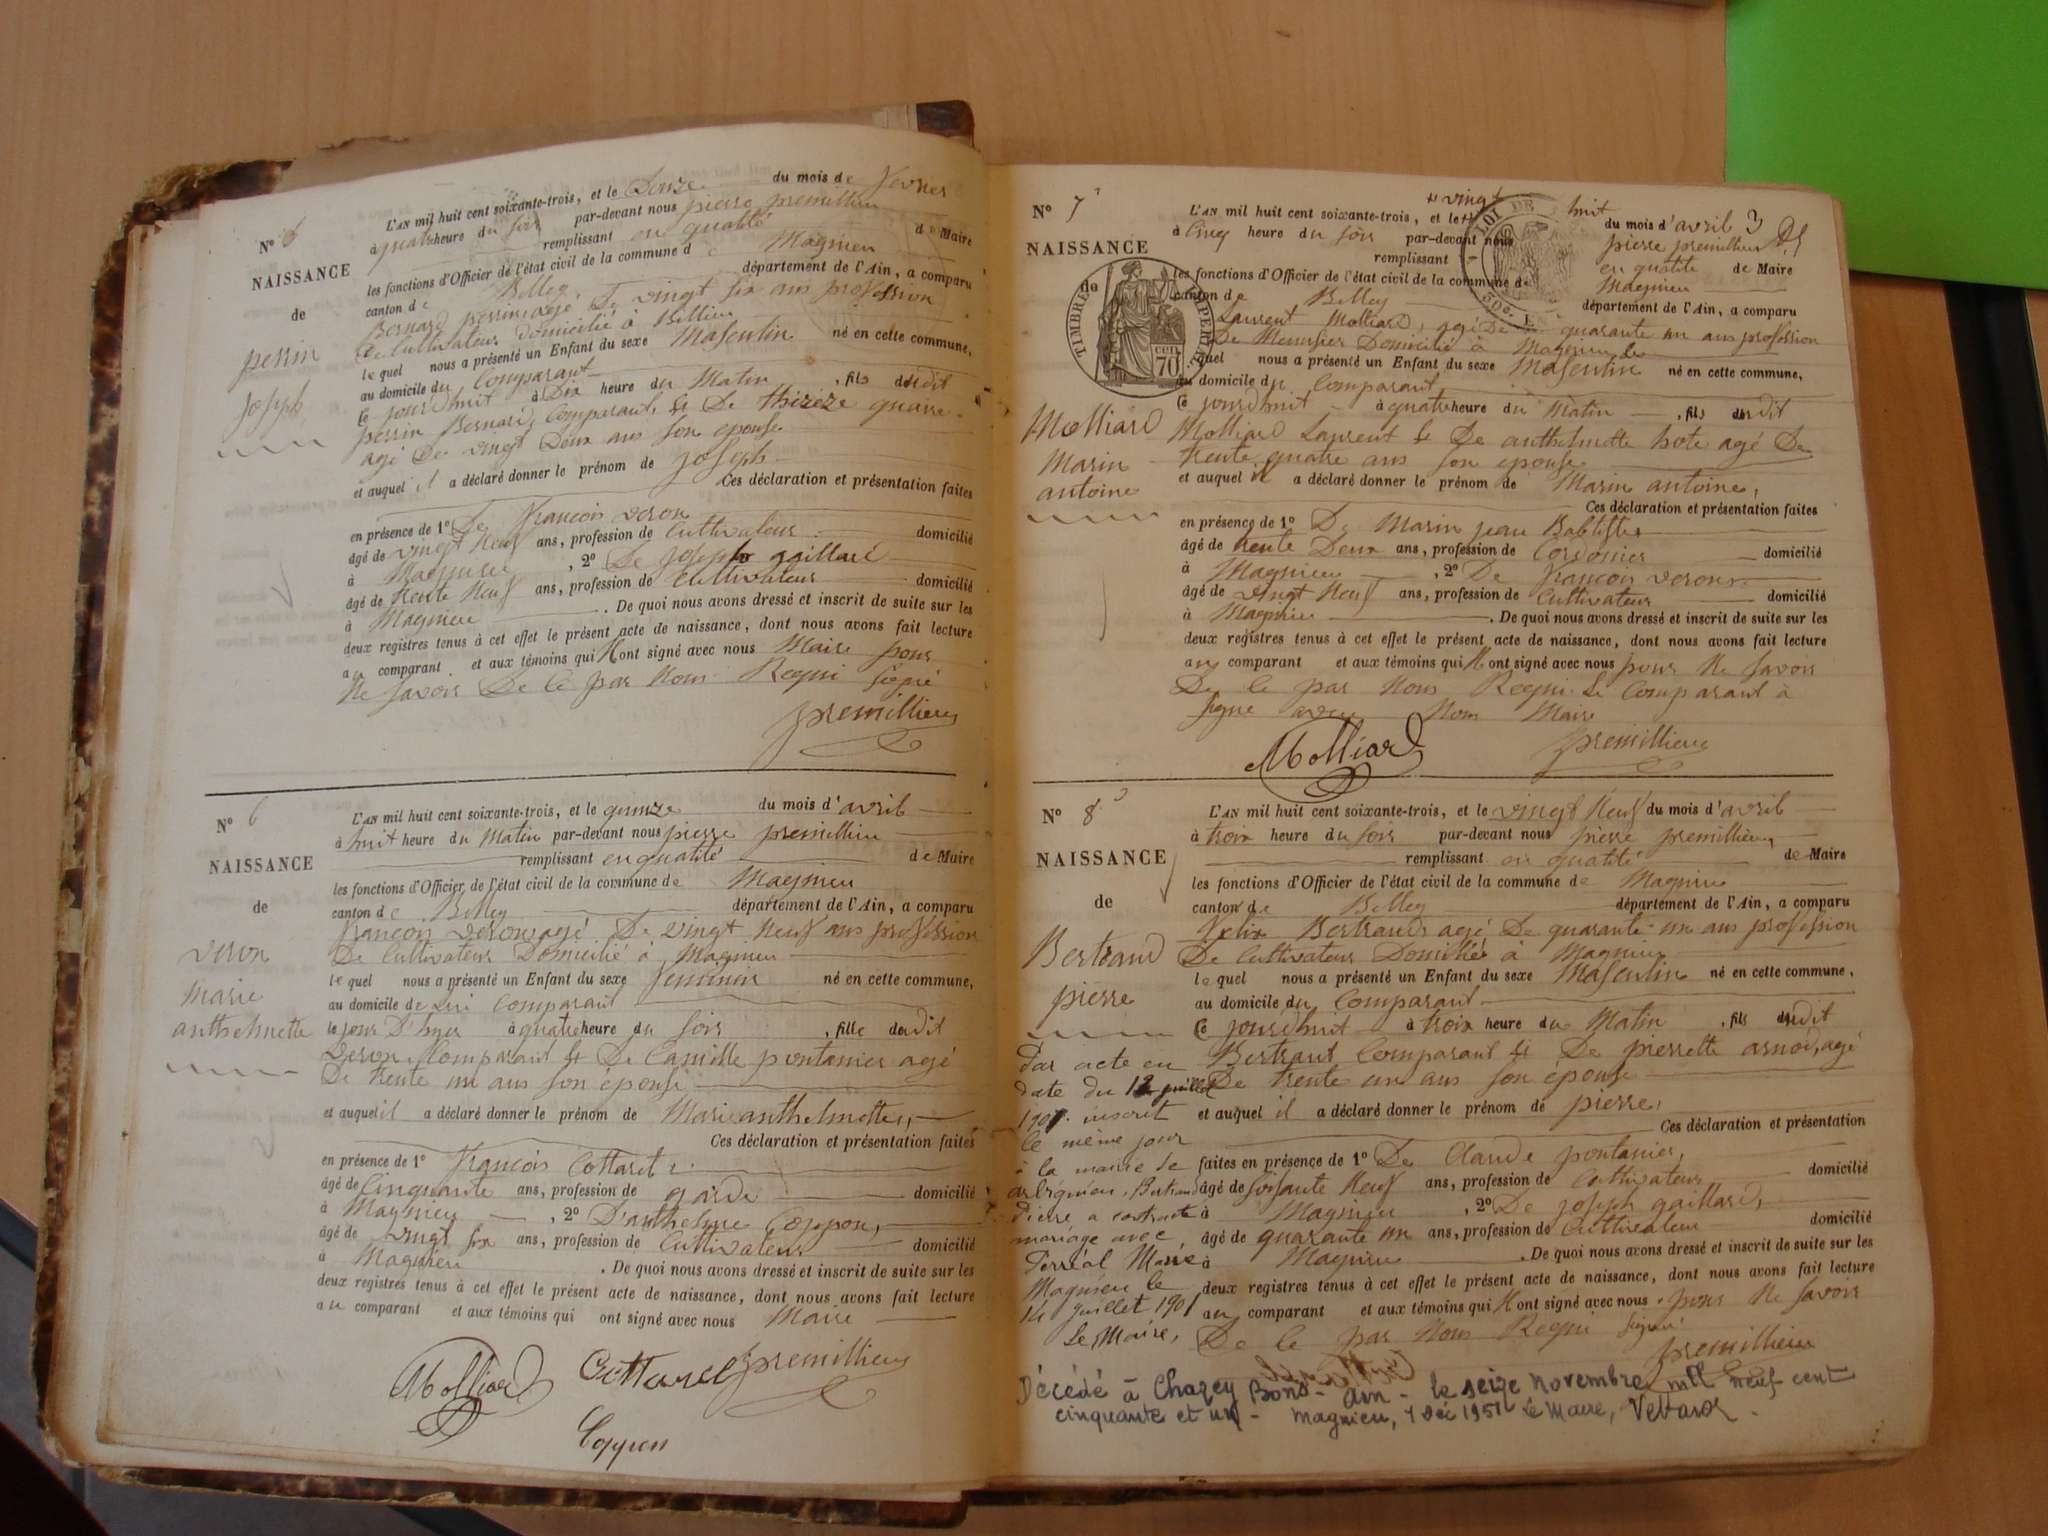 N° 5
NAISSANCE
de
perrin
joseph
L'AN mil huit cent soixante-trois, et le Douze du mois de fevrier
à quatre heure du soir par-devant nous pierre premillieu
remplissant en qualité de Maire
les fonctions d'Officier de l'état civil de la commune de Magnieu
canton de Belley département de l'Ain, a comparu
Bernard perrin agé De vingt six ans profession
De Cultivateur domicilié à Billieu
le quel nous a présenté un Enfant du sexe Masculin né en cette commune,
au domicile du Comparant
Ce jourdhuit à Dix heure du Matin, fils dudit
perrin Bernard, Comparant, & De thereze
agé De vingt Deux ans son epouse
et auquel il a déclaré donner le prénom de joseph
Ces déclaration et présentation faites
en présence de 1° De françois veron
âgé de vingt Neuf ans, profession de Cultivateur domicilié
à Magnieu, 2° De joseph gaillard
âgé de trente Neuf ans, profession de Cultivateur domicilié
à Magnieu. De quoi nous avons dressé et inscrit de suite sur les
deux registres tenus à cet effet le présent acte de naissance, dont nous avons fait lecture
au comparant et aux témoins qui N ont signé avec nous Maire pour
Ne savoir De le par Nous Requi signé
premillieu
N° 6
NAISSANCE
de
veron
marie
anthelmette
L'AN mil huit cent soixante-trois, et le quinze du mois d'avril
à huit heure du Matin par-devant nous pierre premillieu
remplissant en qualité de Maire
les fonctions d'Officier de l'état civil de la commune de Magnieu
canton de Belley département de l'Ain, a comparu
françois veron agé De vingt Neuf ans profession
De Cultivateur Domicilié à Magnieu
le quel nous a présenté un Enfant du sexe feminin né en cette commune,
au domicile de lui Comparant
le jour D'hyer à quatre heure du soir, fille dudit
veron, Comparant & De Camille pontanier agé
De trente un ans son épouse
et auquel il a déclaré donner le prénom de Marie anthelmette,
Ces déclaration et présentation faites
en présence de 1° françois Cottarel
âgé de Cinquante ans, profession de garde domicilié
à Magnieu, 2° D'anthelme Coppon,
âgé de vingt six ans, profession de Cultivateur domicilié
à Magnieu. De quoi nous avons dressé et inscrit de suite sur les
deux registres tenus à cet effet le présent acte de naissance, dont nous avons fait lecture
au comparant et aux témoins qui ont signé avec nous Maire
Molliard Cottarel premillieu
Coppon
N° 7
NAISSANCE
de
TIMBRE IMPERIAL
CEN 70
Molliard
Marin
antoine
LOI DE
50c.
3
+ vingt
L'AN mil huit cent soixante-trois, et le + huit du mois d'avril
à Cinq heure du soir par-devant nous pierre premillieu
remplissant en qualité de Maire
les fonctions d'Officier de l'état civil de la commune de Magnieu
canton de Belley département de l'Ain, a comparu
Laurent Molliard, agé De quarante un ans profession
De Menusier Domicilié à Magnieu
le quel nous a présenté un Enfant du sexe Masculin né en cette commune,
au domicile du Comparant
Ce jourdhuit à quatre heure du Matin, fils dudit
Molliard Laurent & De anthelmette hote agé De
trente quatre ans son epouse
et auquel il a déclaré donner le prénom de Marin antoine,
Ces déclaration et présentation faites
en présence de 1° De Marin jean Babtiste
âgé de trente Deux ans, profession de Cordonier domicilié
à Magnieu, 2° De françois veron
âgé de vingt Neuf ans, profession de Cultivateur domicilié
à Magnieu. De quoi nous avons dressé et inscrit de suite sur les
deux registres tenus à cet effet le présent acte de naissance, dont nous avons fait lecture
au comparant et aux témoins qui N ont signé avec nous pour Ne savoir
De le par Nous Requi Le Comparant à
signé avec Nous Maire
Molliard premillieu
N° 8
NAISSANCE
de
Bertrand
pierre
L'AN mil huit cent soixante-trois, et le vingt Neuf du mois d'avril
à troix heure du soir par-devant nous pierre premillieu,
remplissant en qualité de Maire
les fonctions d'Officier de l'état civil de la commune de Magnieu
canton de Belley département de l'Ain, a comparu
felix Bertrand agé De quarante un ans profession
De Cultivateur Domicilié à Magnieu
le quel nous a présenté un Enfant du sexe Masculin né en cette commune,
au domicile du Comparant
Ce jourdhuit à troix heure du Matin, fils dudit
Bertrand Comparant & De pierrette arnod, agé
De trente un ans son épouse
et auquel il a déclaré donner le prénom de pierre,
Ces déclaration et présentation
faites en présence de 1° De Claude pontanier,
âgé de soisante Neuf ans, profession de Cultivateur domicilié
à Magnieu, 2° De joseph gaillard,
âgé de quarante un ans, profession de Cultivateur domicilié
à Magnieu. De quoi nous avons dressé et inscrit de suite sur les
deux registres tenus à cet effet le présent acte de naissance, dont nous avons fait lecture
au comparant et aux témoins qui N ont signé avec nous pour Ne savoir
De le par Nous Requi signé
premillieu
Par acte en
date du 12 juillet
1901 inscrit
le même jour
à la mairie de
arbignieu, Bertrand
Pierre a contracté
mariage avec
Perréal Marie
Magnieu le
14 juillet 1901
Le Maire,
Décédé à Chazey Bons - Ain - le seize novembre mil neuf cent
cinquante et un - Magnieu, 7 Déc 1951 Le Maire,